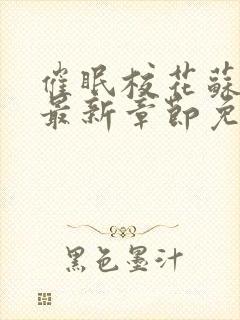 催眠校花蘇
最新章節免
黑色墨汁